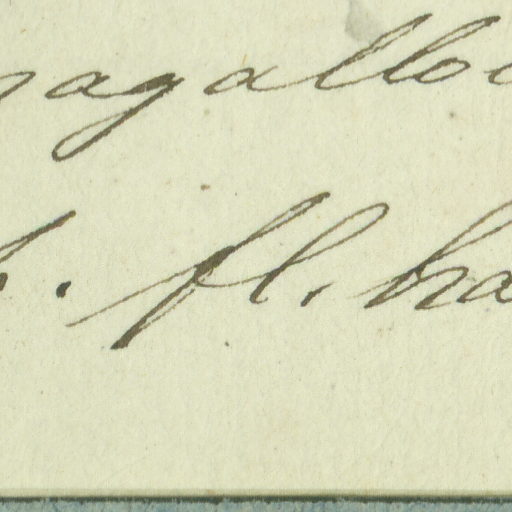 agallo
h. fl. ha